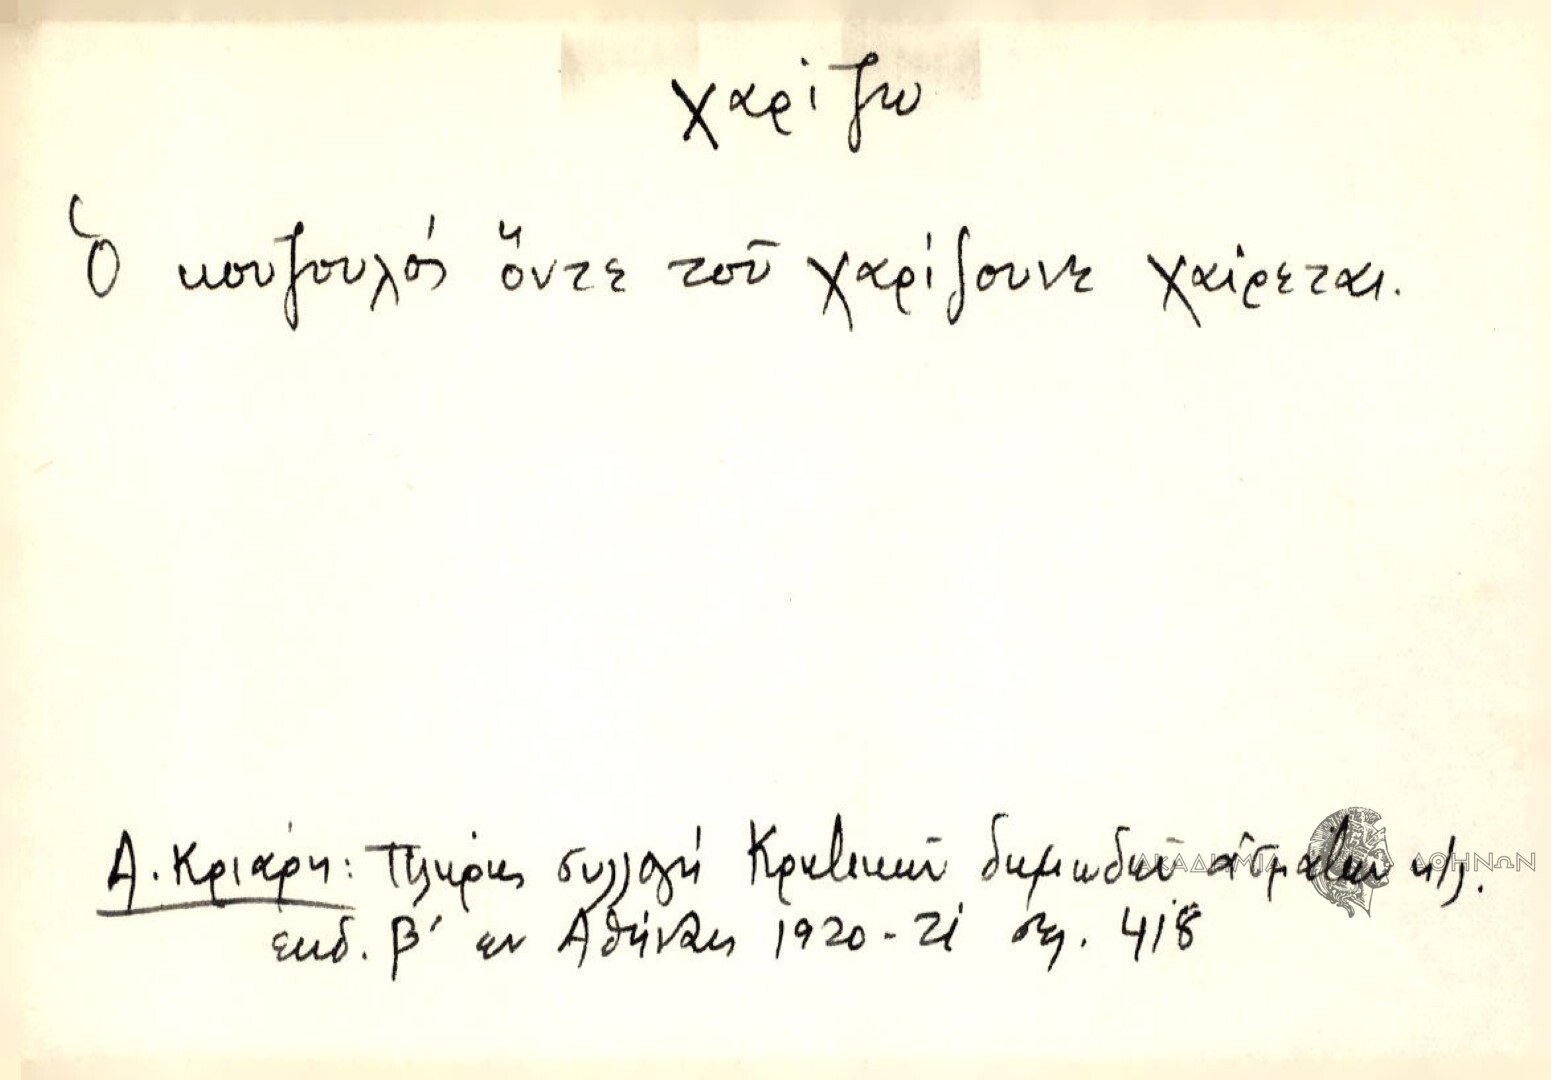 χαρίζω
Ὁ κουζουλός ὅντε τοῦ χαρίζουνε χαίρεται.
Α. Κριάρη: Πλήρης συλλογή Κρητικῶν δημωδῶν ἀσμάτων κλ.
ἐκδ. β' εν Αθήναις 1920-21 σελ. 418
ΑΚΑΔΗΜΙΑ ΑΘΗΝΩΝ